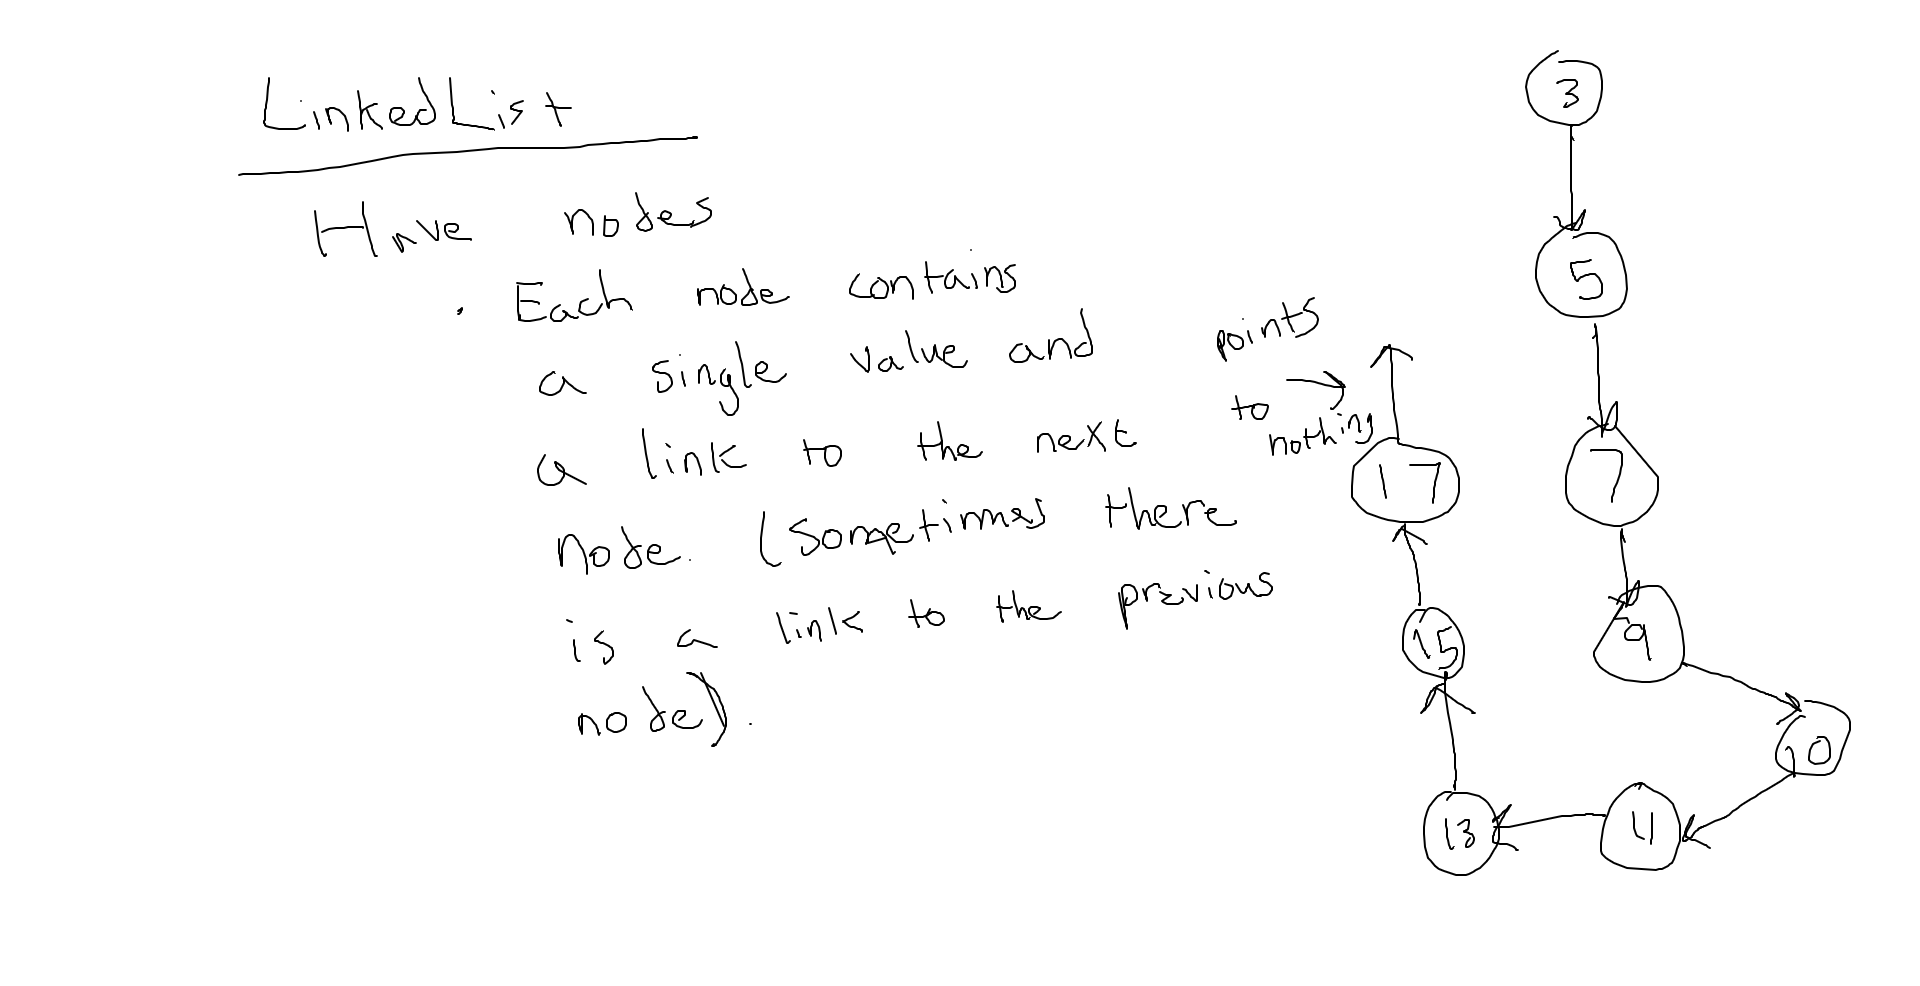 LinkedList
Have nodes
. Each node contains
a single value and
a link to the next
node. (Sometimes there
is a link to the previous
node).
points
to
nothing
3
5
7
9
10
4
13
15
17